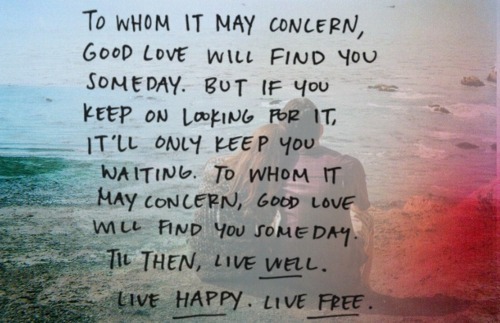 TO WHOM IT MAY CONCERN,
GOOD LOVE WILL FIND YOU
SOMEDAY. BUT IF YOU
KEEP ON LOOKING FOR IT,
IT'LL ONLY KEEP YOU
WAITING. TO WHOM IT
MAY CONCERN, GOOD LOVE
WILL FIND YOU SOMEDAY.
TIL THEN, LIVE WELL.
LIVE HAPPY. LIVE FREE.